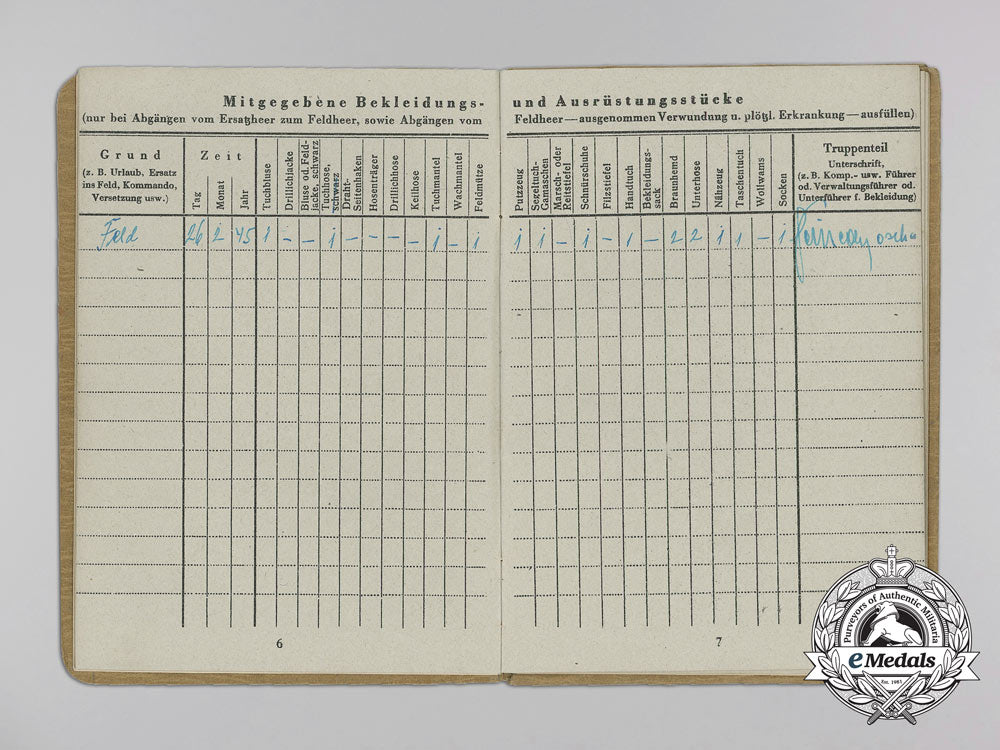 Mitgegebene Bekleidungs-
(nur bei Abgängen vom Ersatzheer zum Feldheer, sowie Abgängen vom
Grund
(z. B. Urlaub, Ersatz
ins Feld, Kommando,
Versetzung usw.)
Zeit
Tag
Monat
Jahr
Tuchbluse
Drillichjacke
Bluse od. Feld-
jacke, schwarz
Tuchhose,
schwarz
Draht-
Seitenhaken
Hosenträger
Drillichhose
Keilhose
Tuchmantel
Wachmantel
Feldmütze
Feld 26 2 45 1 – – 1 – – – – 1 – 1
6
und Ausrüstungsstücke
Feldheer — ausgenommen Verwundung u. plötzl. Erkrankung — ausfüllen)
Putzzeug
Segeltuch-
Gamaschen
Marsch- oder
Reitstiefel
Schnürschuhe
Filzstiefel
Handtuch
Bekleidungs-
sack
Braunhemd
Unterhose
Nähzeug
Taschentuch
Wollwams
Socken
Truppenteil
Unterschrift,
(z. B. Komp.- usw. Führer
od. Verwaltungsführer od.
Unterführer f. Bekleidung)
1 1 – 1 – 1 – 2 2 1 1 – 1
7
Purveyors of Authentic Militaria
eMedals
Est. 1981